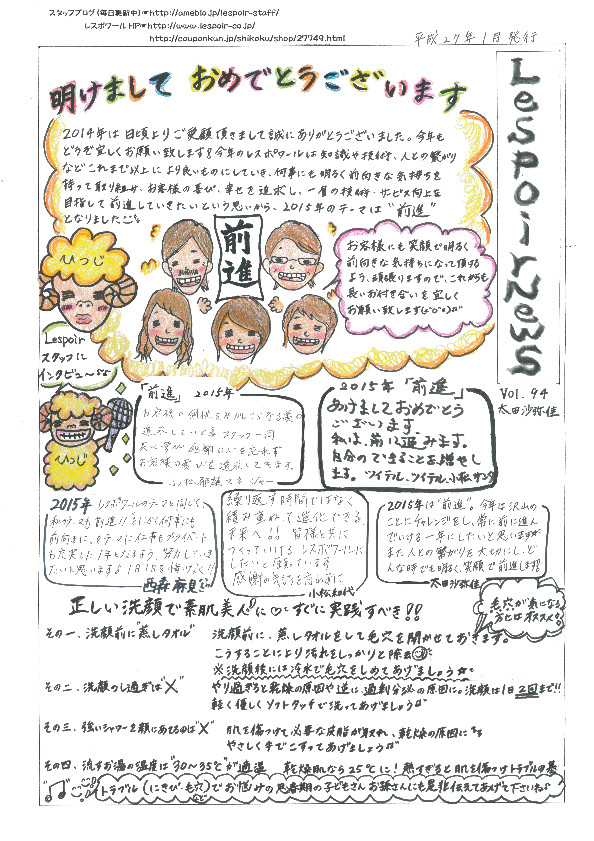 スタッフブログ(毎日更新中)☞http://ameblo.jp/lespoir-staff/
レスポワールHP☞http://www.lespoir-co.jp/
http://couponkun.jp/shikoku/shop/27949.html
平成27年1月発行
Lespoir News
Vol. 94
太田沙弥佳
明けまして おめでとうございます
2014年は日頃よりご愛顧頂きまして誠にありがとうございました。今年も
どうぞ宜しくお願い致します!今年のレスポワールは知識や技術、人との繋がり
などこれまで以上により良いものにしていき、何事にも明るく前向きな気持ちを
持って取り組み、お客様の喜び、幸せを追求し、一層の技術・サービス向上を
目指して前進していきたいという思いから、2015年のテーマは"前進"
となりました
ひつじ
前進
お客様にも笑顔で明るく
前向きな気持ちになって頂ける
よう、頑張りますので、これからも
長いお付き合いを宜しく
お願い致します
Lespoir
スタッフに
インタビュ〜
ひつじ
「前進」 2015年
スタッフ一同
お客様の喜びを追求して
2015年「前進」
あけましておめでとう
ございます。
私は、前に進みます。
自分のできることを増やし
ます。ツイテル、ツイテル、小松サンタ
2015年 レスポワールのテーマと同じで
西森麻見
繰り返す時間ではなく
積み重ねて進化できる
未来へ!! 皆様と共に
つくっていける レスポワールに
したいと思っています
感謝の気持ちを忘れずに
小松知代
2015年は"前進"。今年は沢山の
ことにチャレンジをし、常に前に進ん
でいける一年にしたいと思いますが
また人との繋がりを大切にし、ど
んな時でも明るく、笑顔で前進します!!
太田沙弥佳
正しい洗顔で素肌美人!に♡すぐに実践すべき!!
毛穴が気になる
方にはオススメ
その一、洗顔前に"蒸しタオル" 洗顔前に、蒸しタオルをして毛穴を開かせておきます。
こうすることにより汚れをしっかりと除去
※洗顔後には冷水で毛穴をしめてあげましょう
その二、洗顔のし過ぎは"×" やり過ぎると乾燥の原因や逆に過剰分泌の原因に。洗顔は1日2回まで!!
軽く優しくソフトタッチで洗ってあげましょう
その三、強いシャワーを顔にあてるのは"×" 肌を傷つけて必要な皮脂が取れ、乾燥の原因に
やさしく手でこすってあげましょう
その四、流すお湯の温度は"30〜35℃"が適温 乾燥肌なら25℃に!熱すぎると肌を傷つけトラブルの基
トラブル(にきび・毛穴)などでお悩みの思春期の子どもさん お孫さんにも是非伝えてあげて下さいね